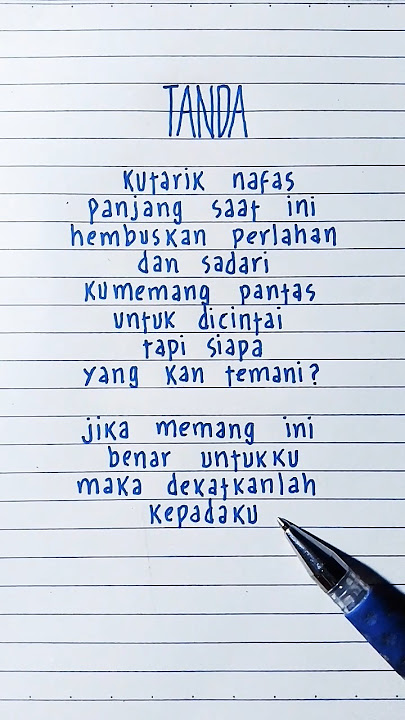 TANDA
kutarik nafas
panjang saat ini
hembuskan perlahan
dan sadari
kumemang pantas
untuk dicintai
tapi siapa
yang kan temani?
jika memang ini
benar untukku
maka dekatkanlah
kepadaku